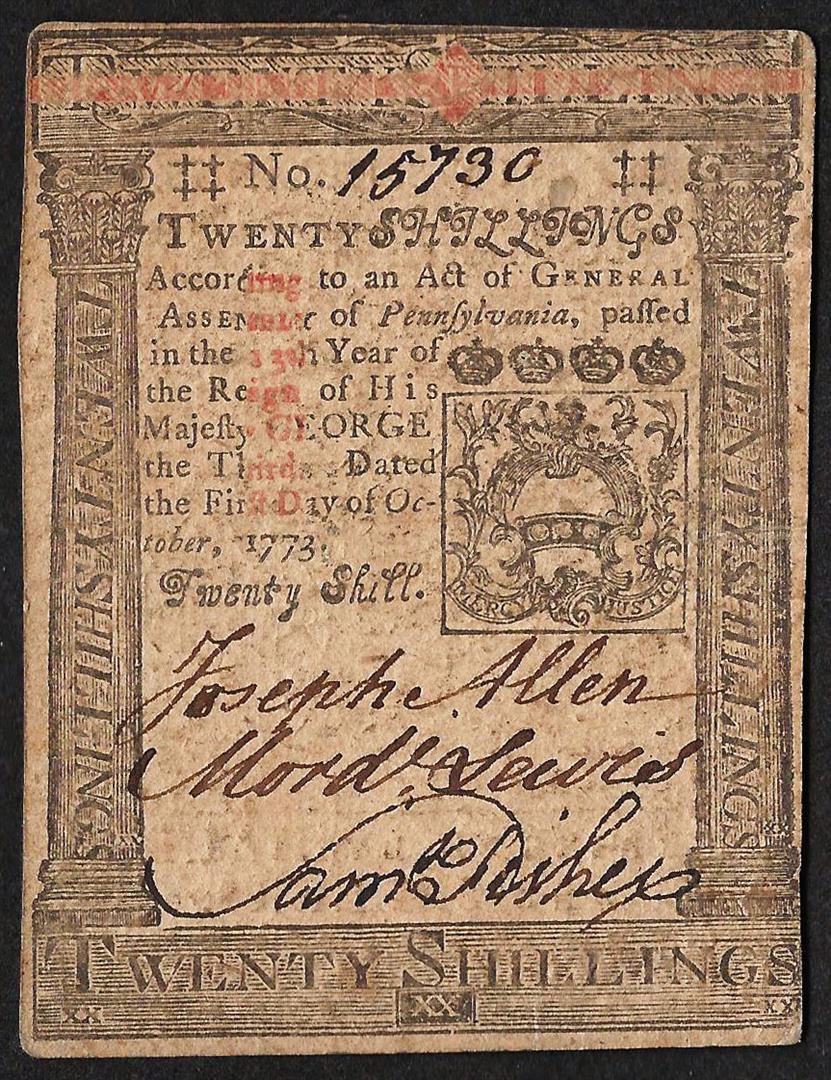 TWENTY SHILLINGS
‡‡ No. 15730 ‡‡
TWENTY SHILLINGS
According to an Act of GENERAL
ASSEMBLY of Pennſylvania, paſſed
in the 13th Year of
the Reign of His
Majeſty GEORGE
the Third. Dated
the Firſt Day of Oc-
tober, 1773.
Twenty Shill.
MERCY JUSTICE
TWENTY SHILLINGS
TWENTY SHILLINGS
Joseph Allen
Mord.ͨ Lewis
Sam.ˡ Fisher
XX
XX
TWENTY SHILLINGS
XX XX XX